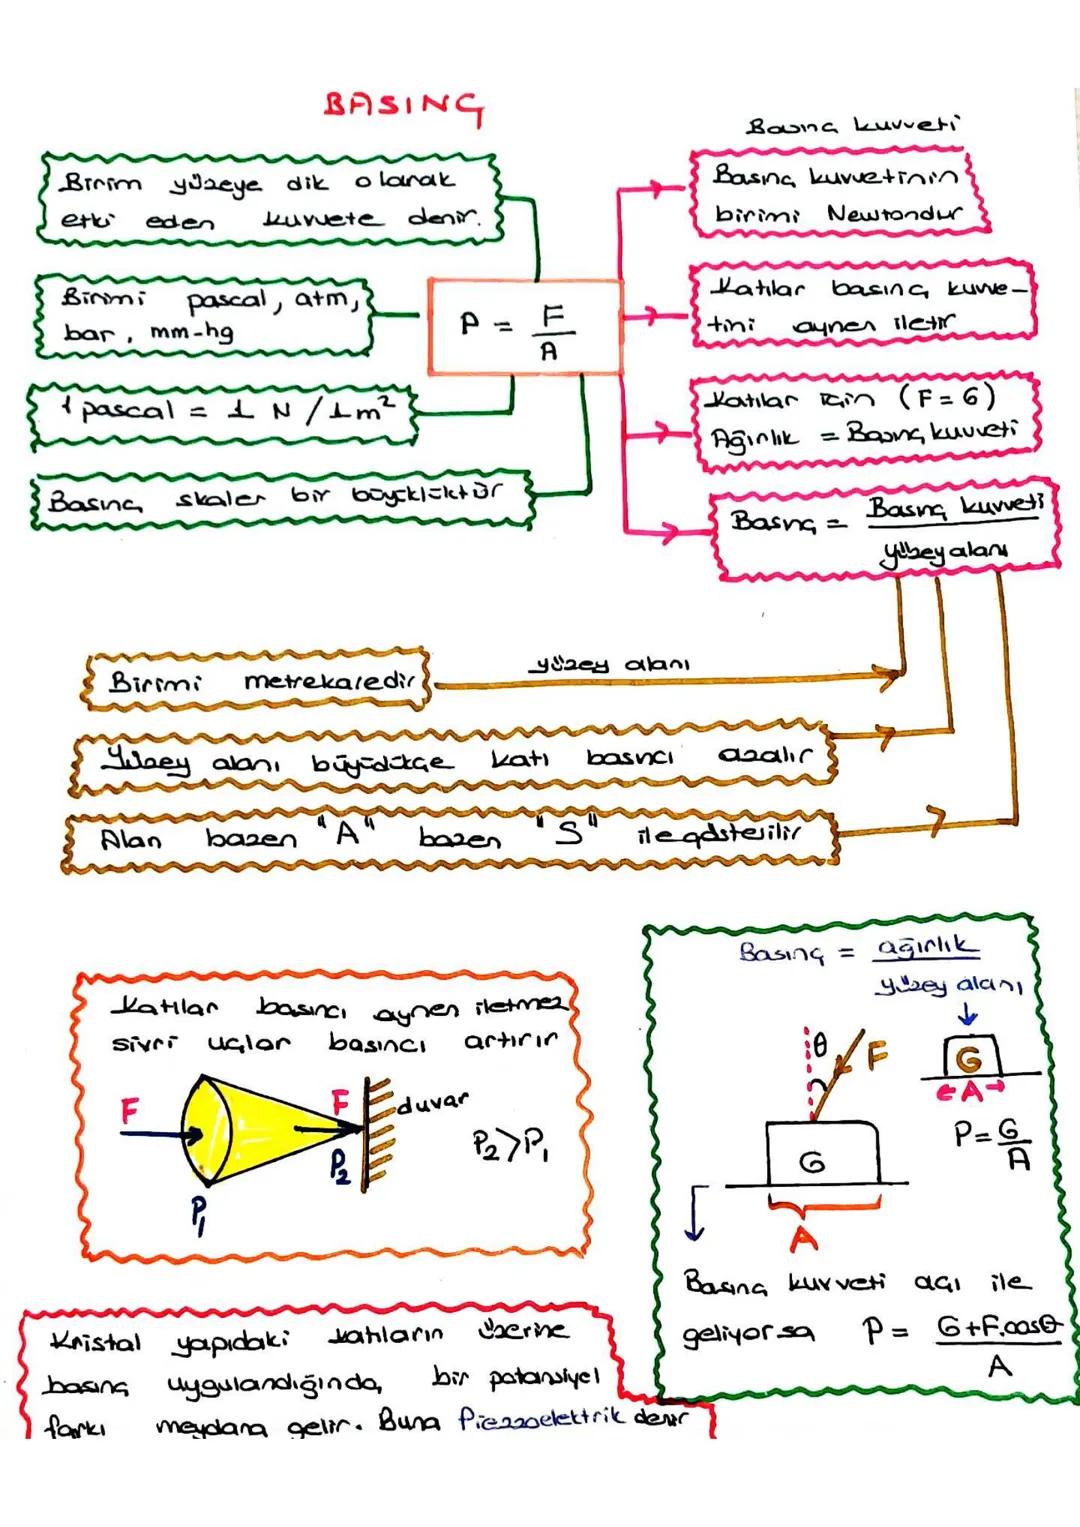 BASINÇ
Birim yüzeye dik olarak
etki eden kuvvete denir.
Birimi pascal, atm,
bar, mm-hg
1 pascal = 1 N / 1 m²
Basınç skaler bir büyüklüktür
P = F
A
Basınç kuvveti
Basınç kuvvetinin
birimi Newtondur
Katılar basınç kuvve-
tini aynen iletir
Katılar için (F=G)
Ağırlık = Basınç kuvveti
Basınç = Basınç kuvveti
yüzey alanı
Birimi metrekaredir
yüzey alanı
Yüzey alanı büyüdükçe katı basıncı azalır
Alan bazen "A" bazen "S" ile gösterilir
Katılar basıncı aynen iletmez
sivri uçlar basıncı artırır
F
F
duvar
P₂
P₂>P₁
P₁
Basınç = ağırlık
yüzey alanı
θ
F
G
A
P=G
A
G
A
Basınç kuvveti açı ile
geliyorsa P = G+F.cosθ
A
Kristal yapıdaki katıların üzerine
basınç uygulandığında, bir potansiyel
farkı meydana gelir. Buna Piezzoelektrik denir